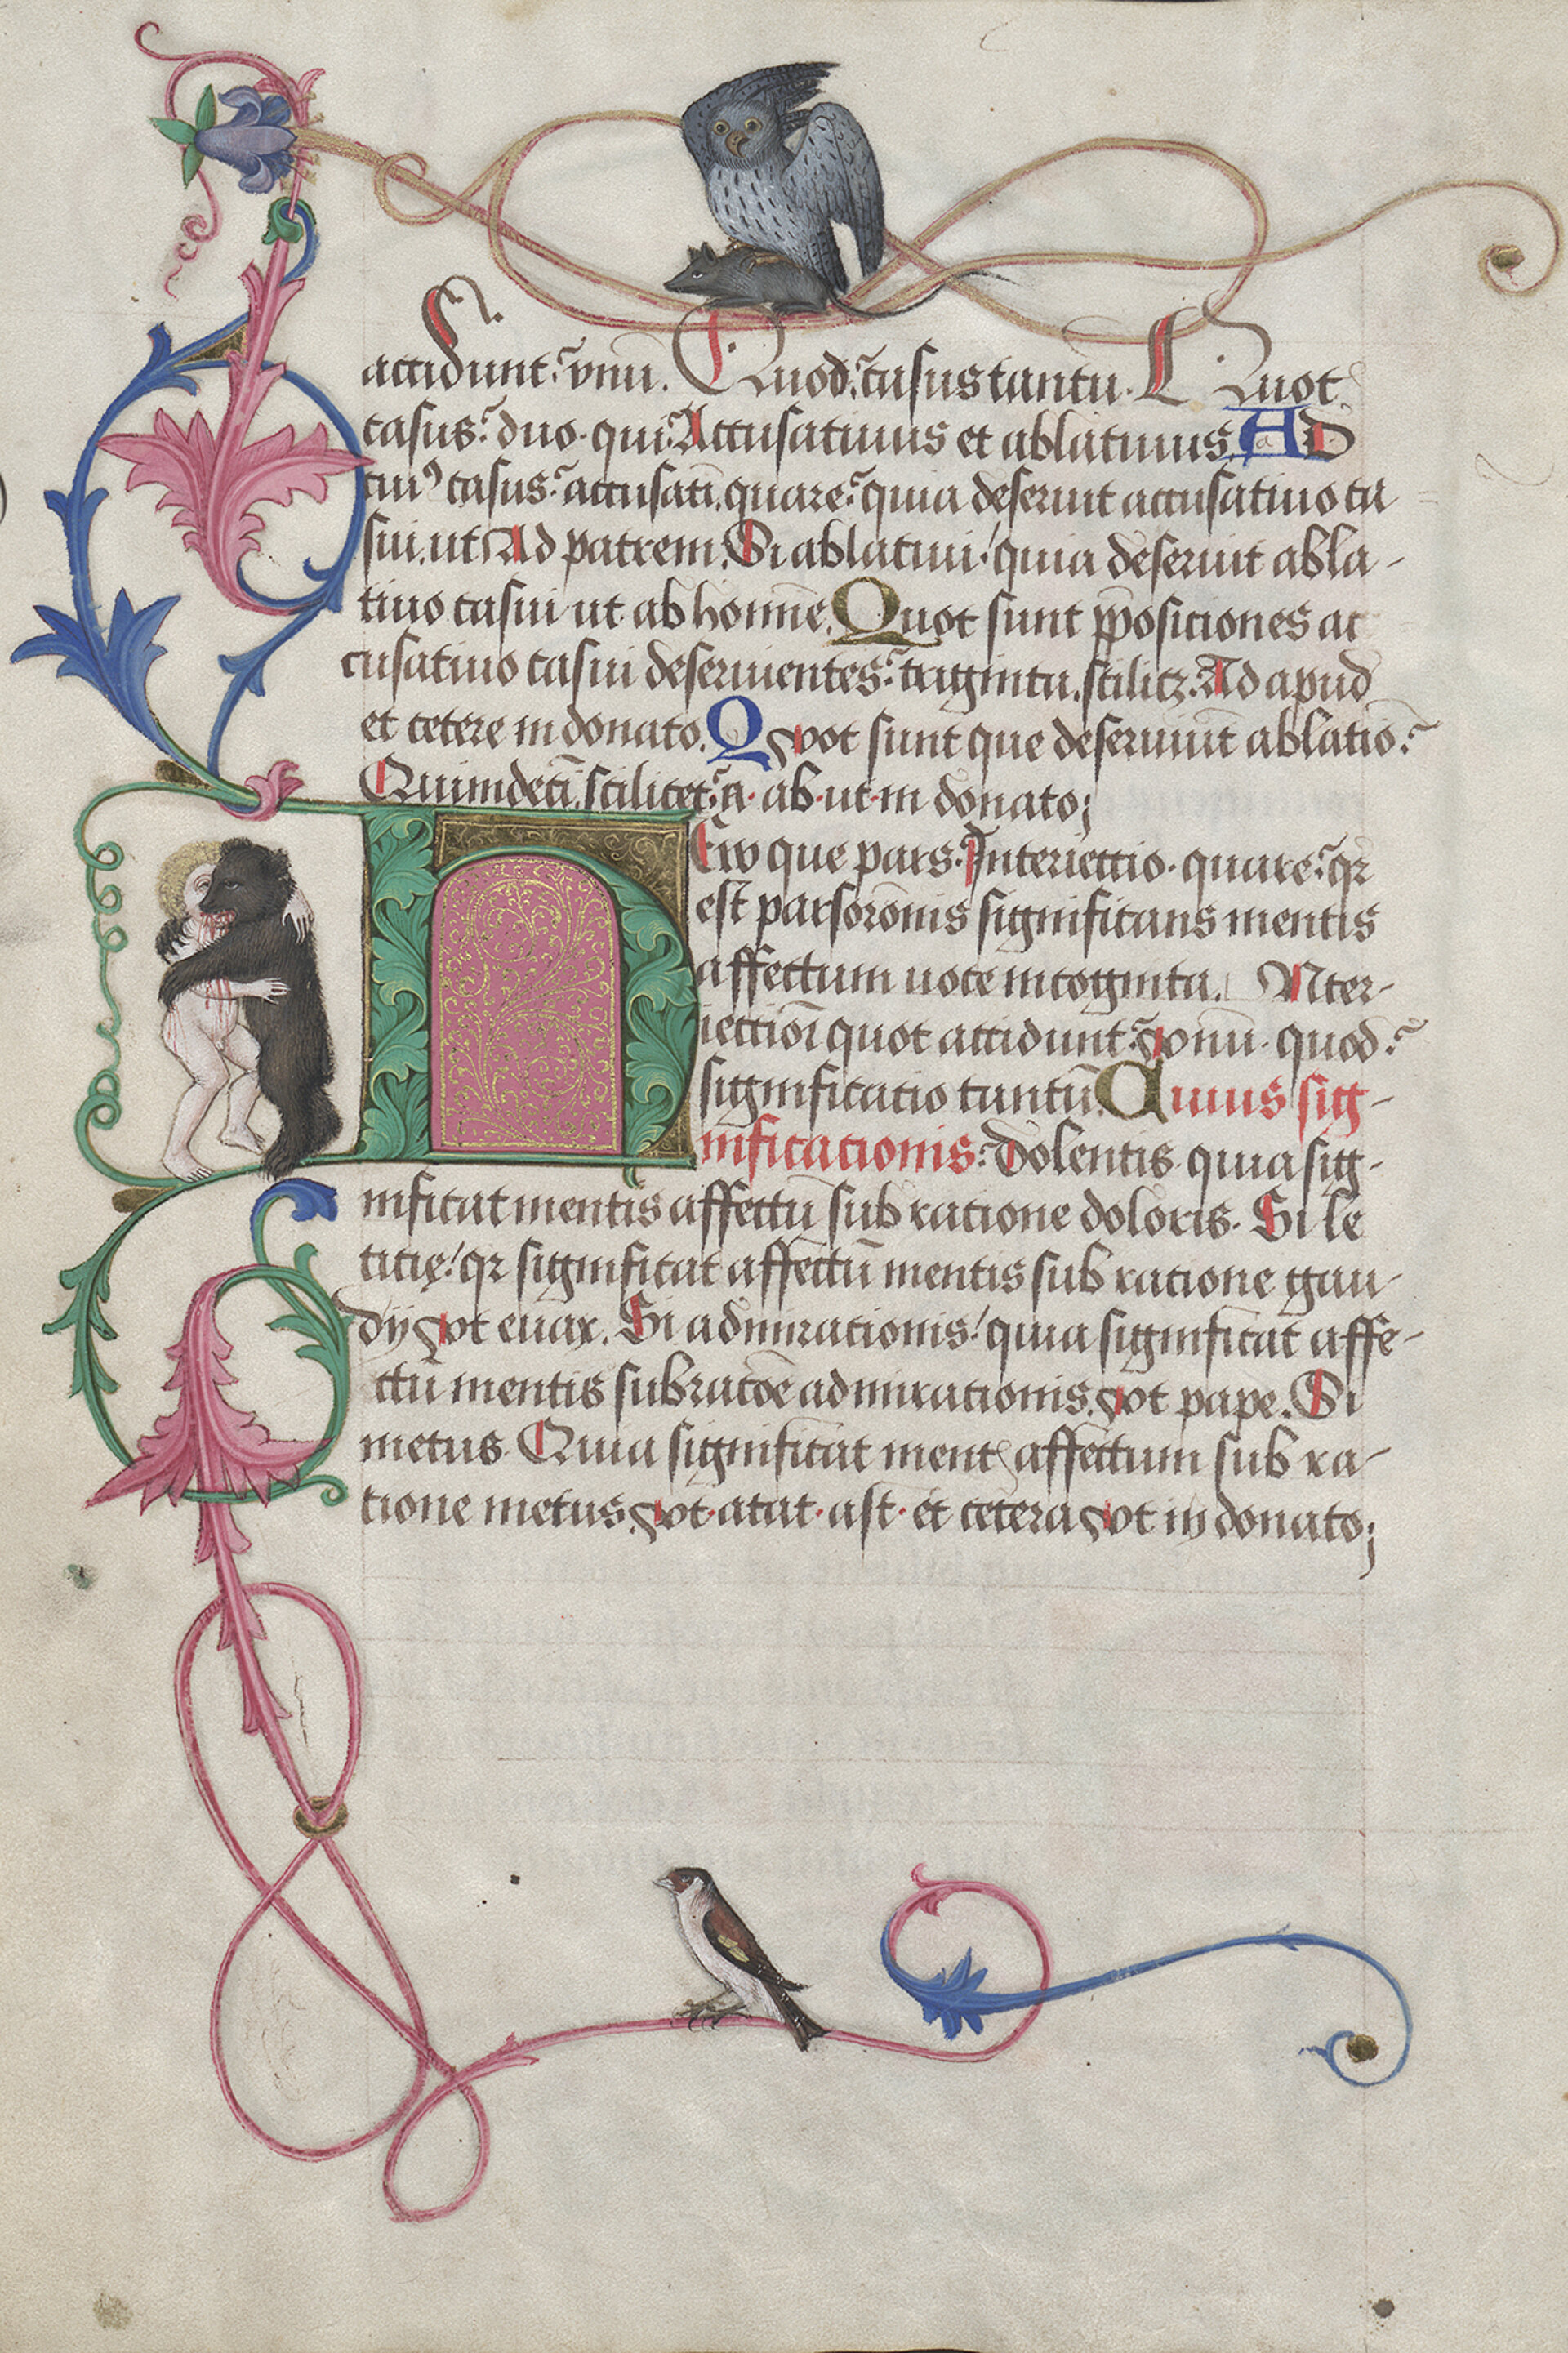 accidunt? vnū. Quod? casus tantū. Quot
casus? duo. qui? Accusatiuus et ablatiuus. AD
cuiꝰ casus? accusati. quare? quia deseruit accusatiuo ca
sui. ut Ad patrem. Si ablatiui / quia deseruit abla-
tiuo casui ut ab homīe. Quot sunt p̄posiciones ac
cusatiuo casui deseruientes? triginta. scilicꝫ. Ad apud
et cetere in donato. Qvot sunt que deseruiūt ablatiō?
Quindecī. scilicet? a. ab. ut in donato;
Hew que pars. Interiectio. quare? qr
est pars orōnis significans mentis
affectum uoce incognita. Nter-
iectiōi quot accidunt? vnū. quod?
significatio tantū. Cuius sig-
nificationis? Dolentis quia sig-
nificat mentis affectū sub ratione doloris. Si le
ticię / qr significat affectū mentis sub ratione gau-
dij vt euax. Si admirationis / quia significat affe-
ctū mentis sub racōe admirationis. vt pape. Si
metus. Quia significat ment̄ affectum sub ra-
tione metus. vt. atat. ast. et cetera vt in donato;